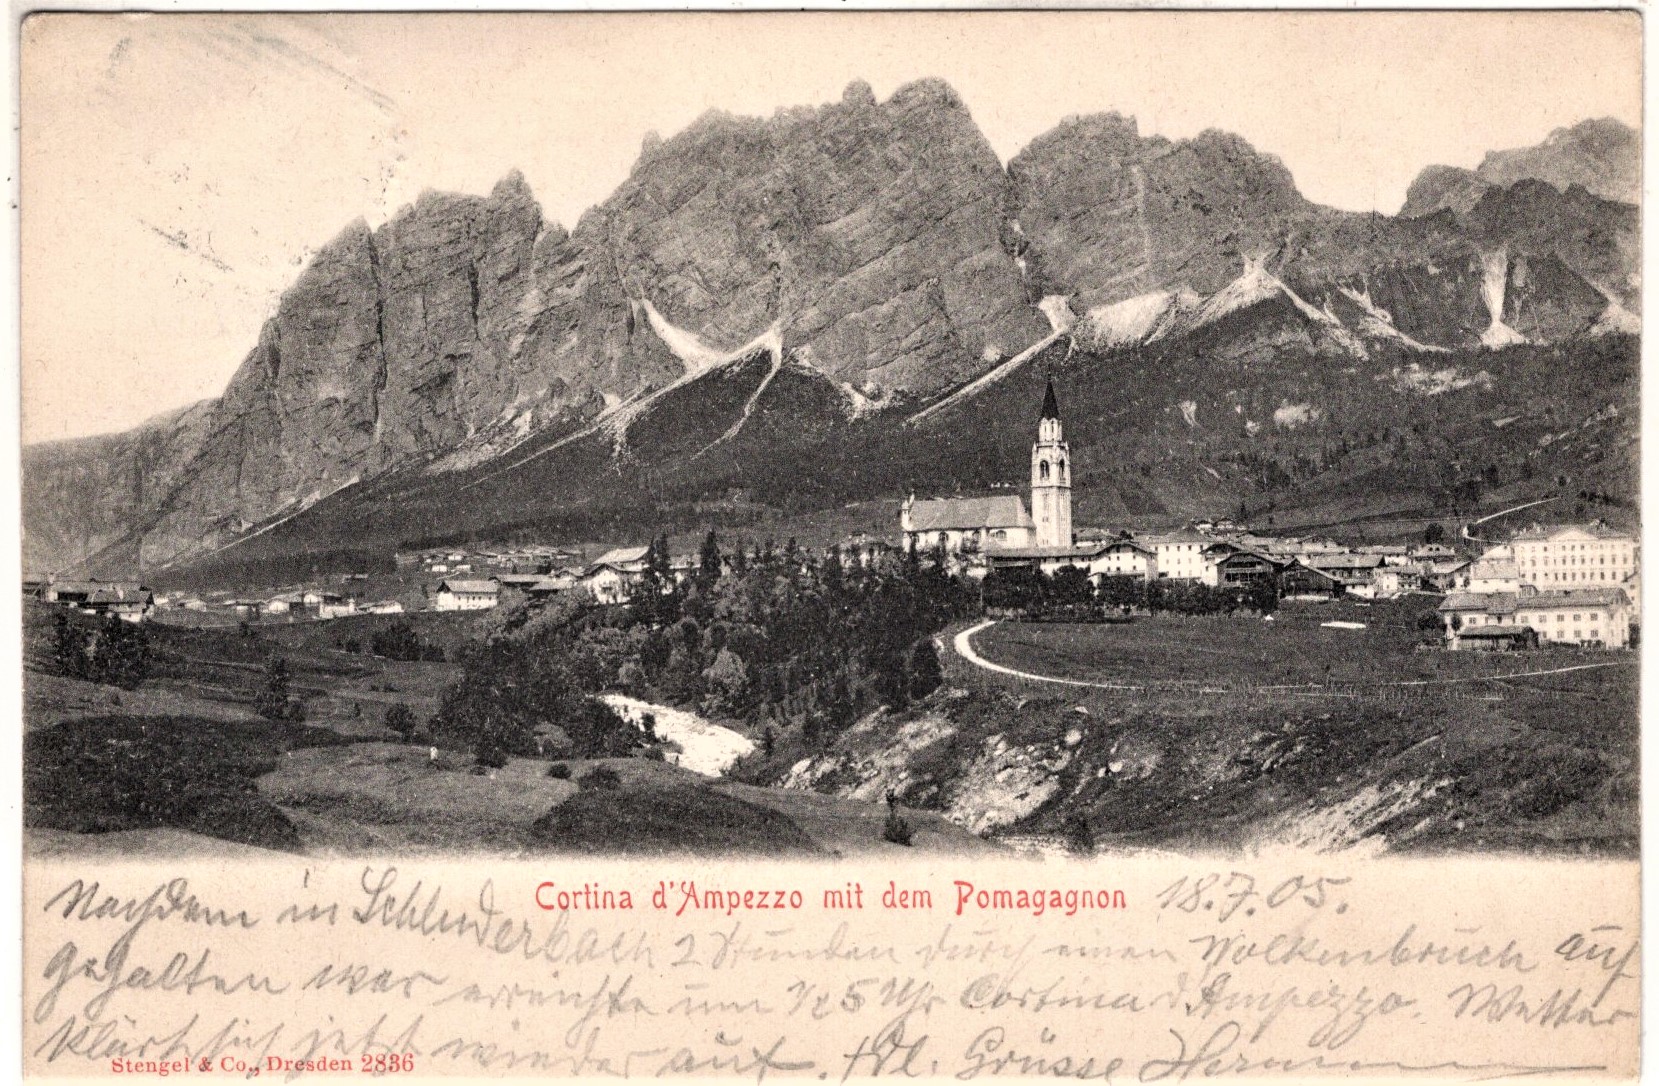 Cortina d'Ampezzo mit dem Pomagagnon 18.7.05.
Nachdem in Schluderbach 2 Stunden durch einen Wolkenbruch auf
gehalten war erreichte um 1/2 5 Uhr Cortina d. Ampezzo. Wetter
klärt sich jetzt wieder auf. Hdl. Grüsse Herman
Stengel & Co., Dresden 2836